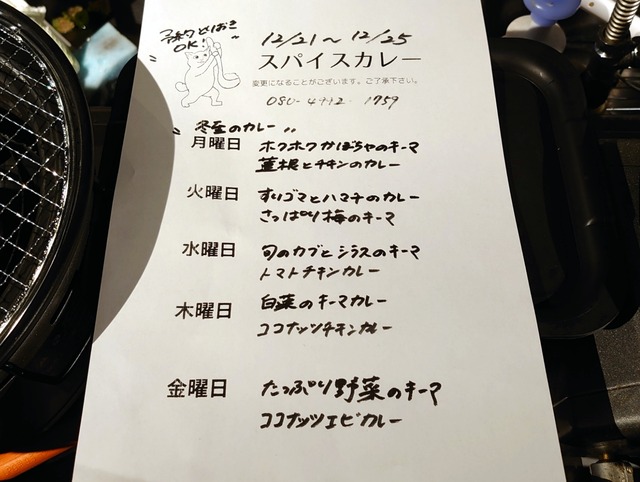 予約とりおき
OK!
12/21〜12/25
スパイスカレー
変更になることがございます。ご了承下さい。
080-4442-1759
冬至のカレー
月曜日 ホクホクかぼちゃのキーマ
蓮根とチキンのカレー
火曜日 すりゴマとハマチのカレー
さっぱり梅のキーマ
水曜日 旬のカブとシラスのキーマ
トマトチキンカレー
木曜日 白菜のキーマカレー
ココナッツチキンカレー
金曜日 たっぷり野菜のキーマ
ココナッツエビカレー